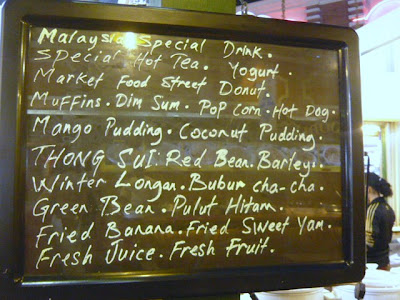 Malaysia Special Drink.
Special Hot Tea. Yogurt.
Market Food Street Donut.
Muffins. Dim Sum. Pop Corn. Hot Dog.
Mango Pudding. Coconut Pudding.
THONG SUI: Red Bean. Barley.
Winter Longan. Bubur cha-cha.
Green Bean. Pulut Hitam.
Fried Banana. Fried Sweet Yam.
Fresh Juice. Fresh Fruit.